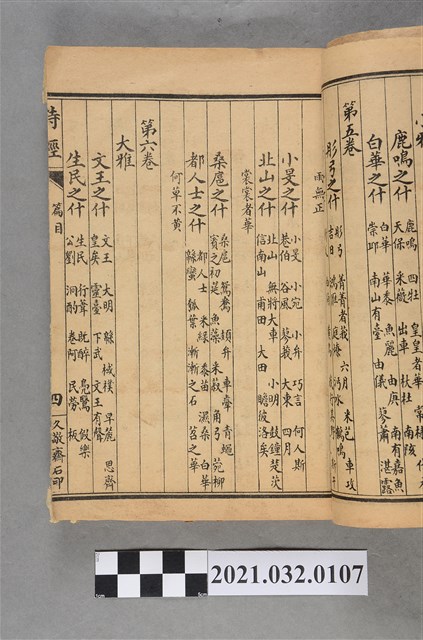 小雅
鹿鳴之什
鹿鳴 四牡 皇皇者華
天保 采薇 出車 杕杜
白華之什
白華 華黍 魚麗 由庚 南有嘉魚
崇邱 南山有臺 由儀 蓼蕭 湛露
第五卷
彤弓之什
彤弓 菁菁者莪 六月 采芑 車攻
吉日
雨無正
小旻之什
小旻 小宛 小弁 巧言 何人斯
巷伯 谷風 蓼莪 大東 四月
北山之什
北山 無將大車 小明 鼓鐘 楚茨
信南山 甫田 大田 瞻彼洛矣
裳裳者華
桑扈之什
桑扈 鴛鴦 頍弁 車舝 青蠅
賓之初筵 魚藻 采菽 角弓 菀柳
都人士之什
都人士 采綠 黍苗 濕桑 白華
緜蠻 瓠葉 漸漸之石 苕之華
何草不黃
第六卷
大雅
文王之什
文王 大明 緜 棫樸 旱麓 思齊
皇矣 靈臺 下武 文王有聲
生民之什
生民 行葦 既醉 鳧鷖 假樂
公劉 泂酌 卷阿 民勞 板
詩經
篇目
四
久敬齋石印
2021.032.0107